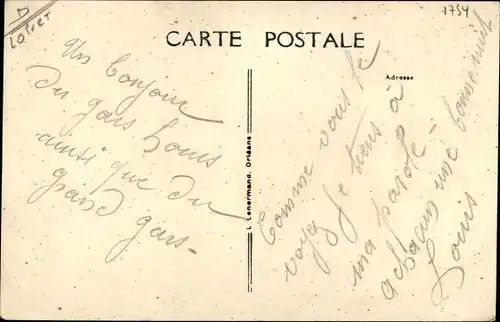 LOIRET
1754
CARTE POSTALE
Adresse
Un bonjour
du gars Louis
ainsi que du
grand gars-
L. Lenormand, Orléans
Comme vous le
voyez je tiens à
ma parole-
à chacun une bonne nuit
Louis